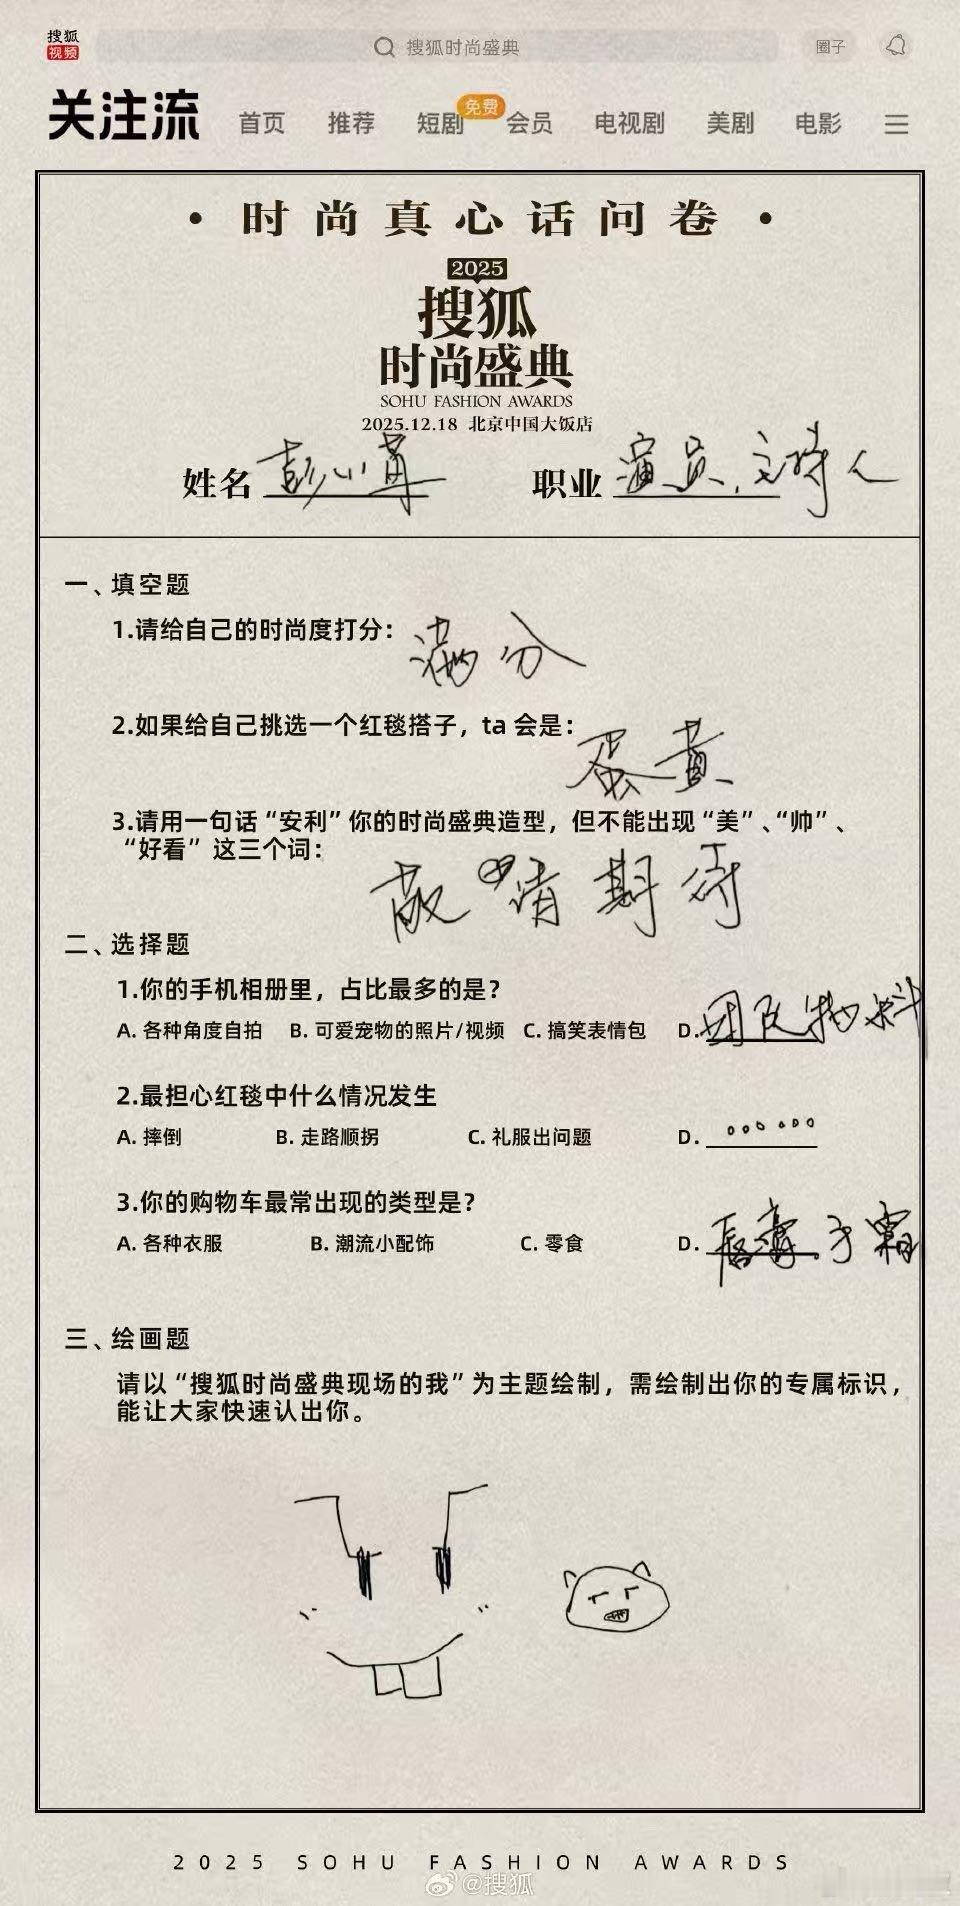 搜狐
视频
搜狐时尚盛典
圈子
关注流 首页 推荐 短剧 免费 会员 电视剧 美剧 电影
·时尚真心话问卷·
2025
搜狐
时尚盛典
SOHU FASHION AWARDS
2025.12.18 北京中国大饭店
姓名 彭小苒 职业 演员、主持人
一、填空题
1.请给自己的时尚度打分：满分
2.如果给自己挑选一个红毯搭子，ta 会是：蛋黄
3.请用一句话“安利”你的时尚盛典造型，但不能出现“美”、“帅”、
“好看”这三个词：
敬请期待
二、选择题
1.你的手机相册里，占比最多的是？
A. 各种角度自拍 B. 可爱宠物的照片/视频 C. 搞笑表情包 D. 团队物料
2.最担心红毯中什么情况发生
A. 摔倒 B. 走路顺拐 C. 礼服出问题 D. 。。。。。。
3.你的购物车最常出现的类型是？
A. 各种衣服 B. 潮流小配饰 C. 零食 D. 唇膏.手霜
三、绘画题
请以“搜狐时尚盛典现场的我”为主题绘制，需绘制出你的专属标识，
能让大家快速认出你。
2025 SOHU FASHION AWARDS
@搜狐